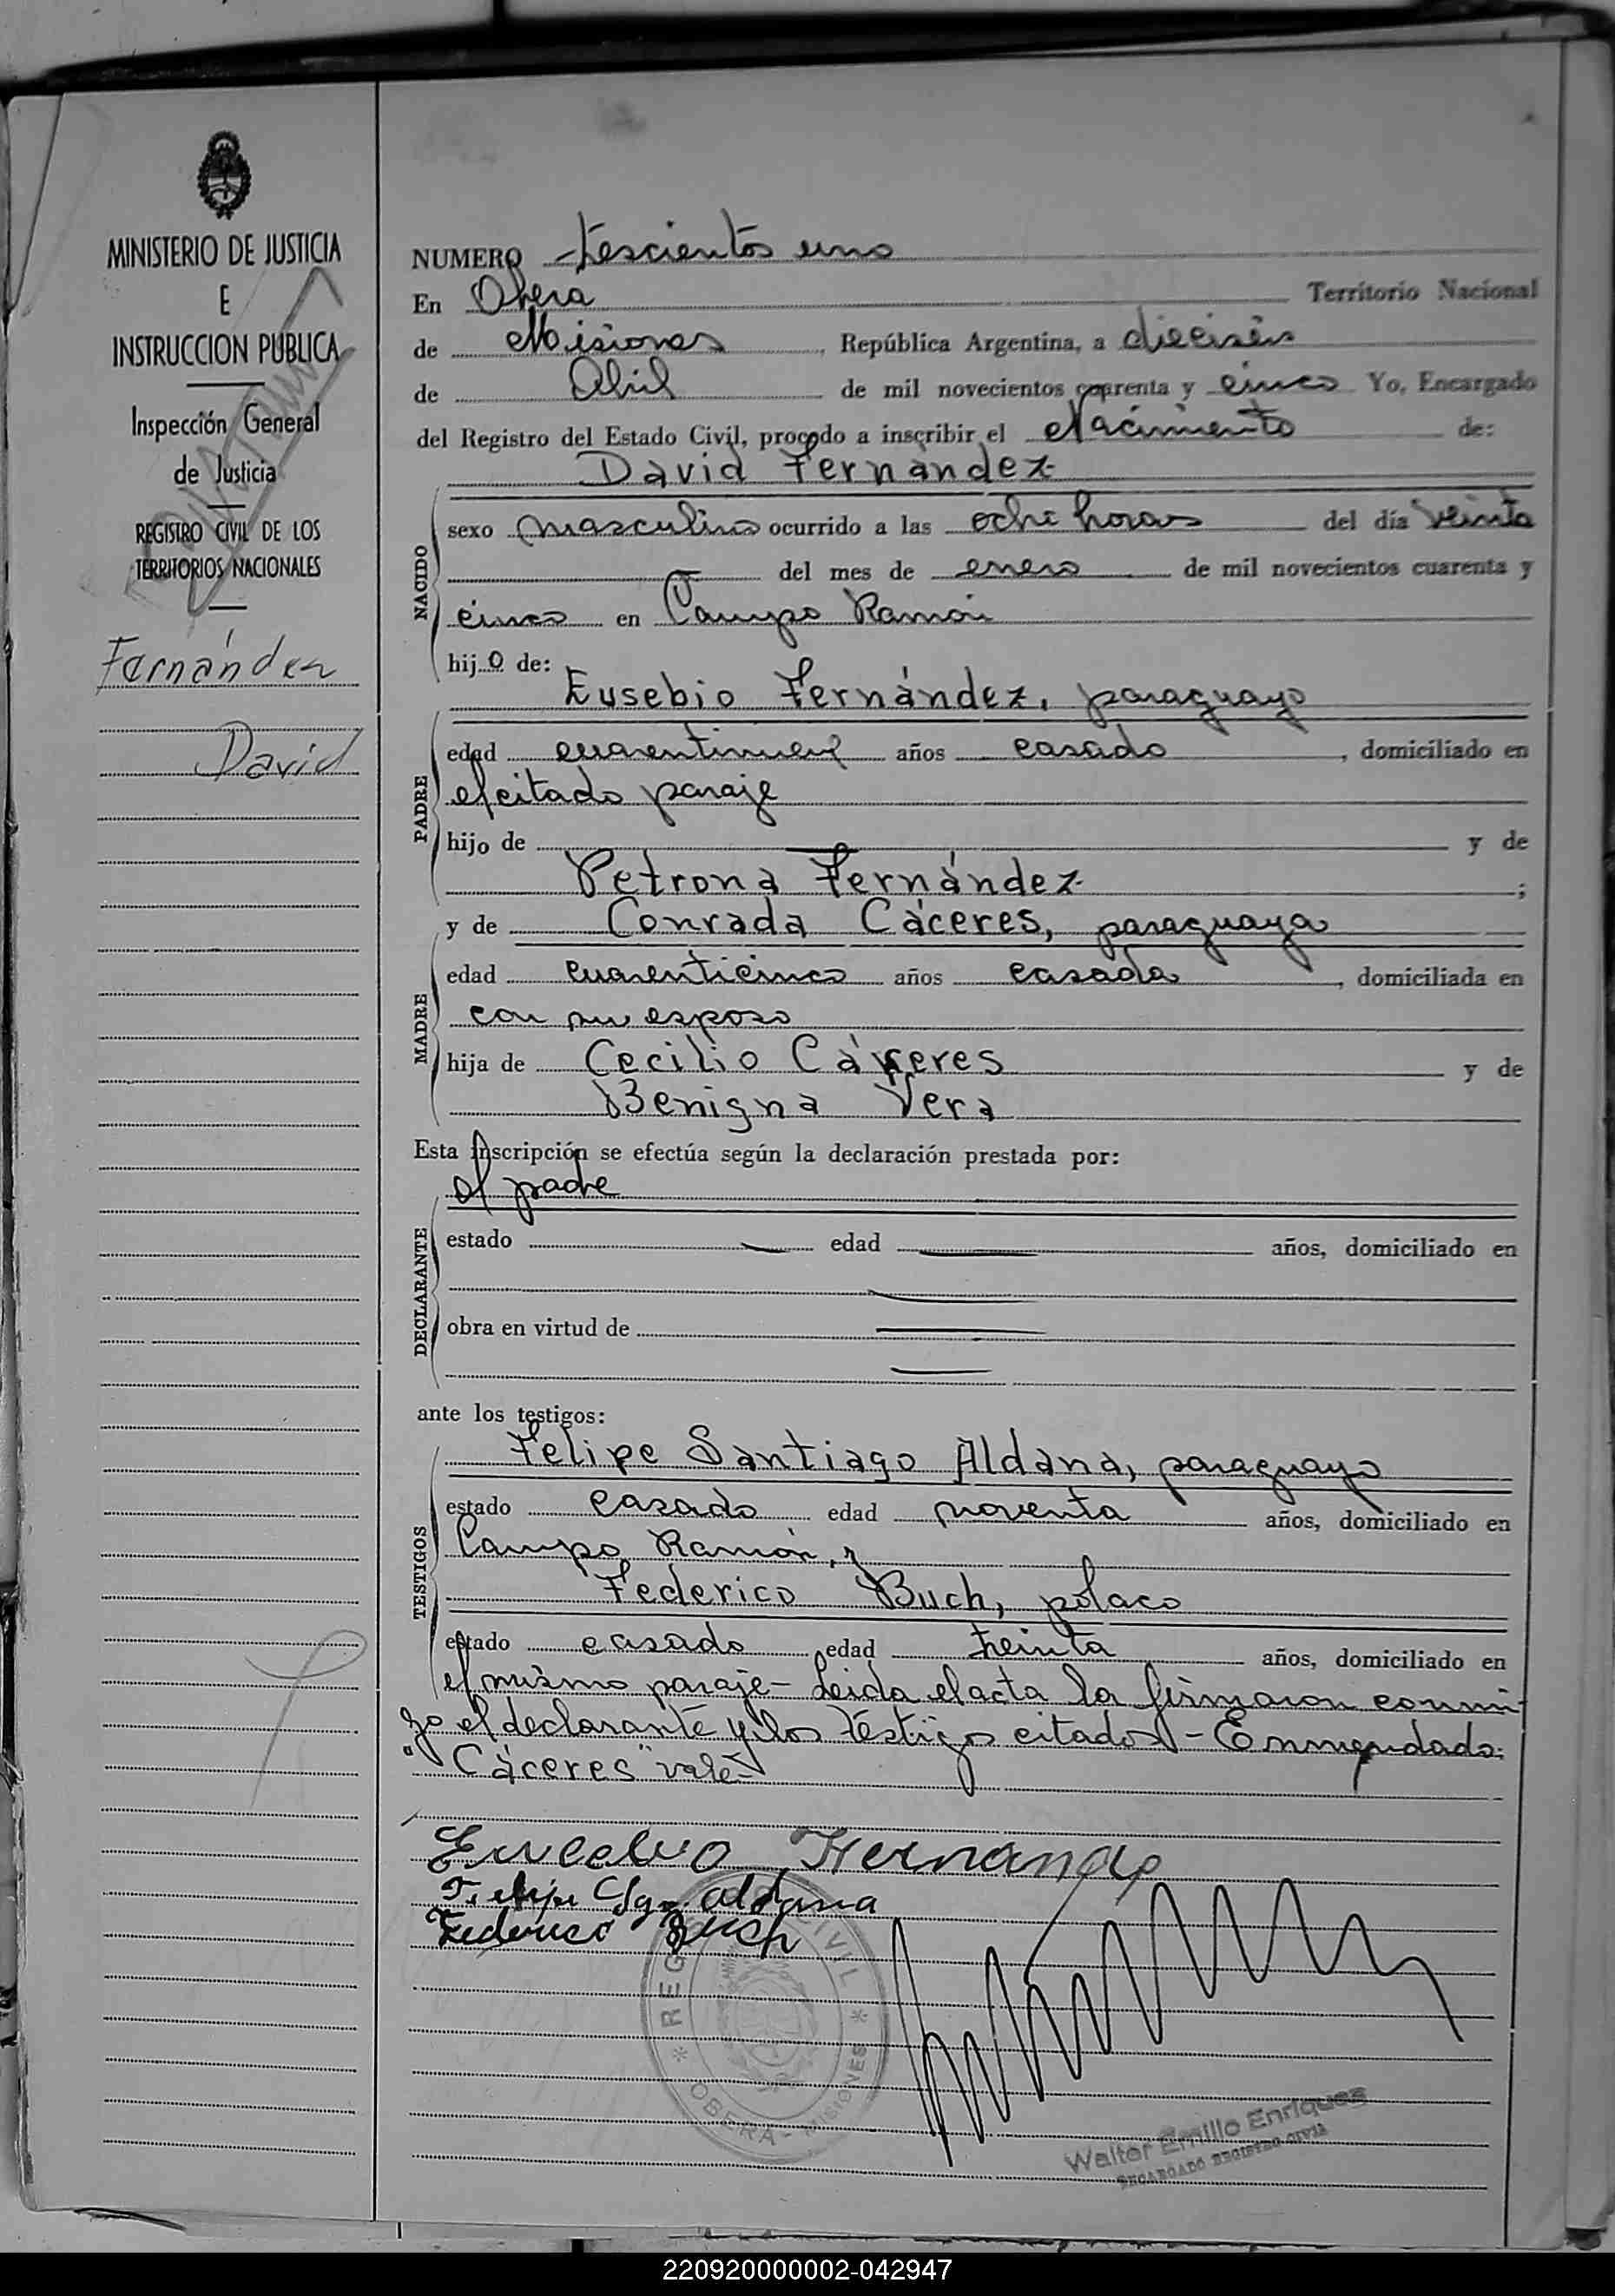 MINISTERIO DE JUSTICIA
E
INSTRUCCION PUBLICA
Inspección General
de Justicia
REGISTRO CIVIL DE LOS
TERRITORIOS NACIONALES
Fernández
David
NUMERO Trescientos uno
En Obera Territorio Nacional
de Misiones, República Argentina, a dieciséis
de Abril de mil novecientos cuarenta y cinco Yo, Encargado
del Registro del Estado Civil, procedo a inscribir el Nacimiento de:
David Fernández
NACIDO
sexo masculino ocurrido a las ocho horas del día veinte
del mes de enero de mil novecientos cuarenta y
cinco en Campo Ramón
hijo de:
PADRE
Eusebio Fernández, paraguayo
edad cuarentinueve años casado, domiciliado en
el citado paraje
hijo de — y de
Petrona Fernández;
MADRE
y de Conrada Cáceres, paraguaya
edad cuarenticinco años casada, domiciliada en
con su esposo
hija de Cecilio Cáceres y de
Benigna Vera
Esta inscripción se efectúa según la declaración prestada por:
DECLARANTE
el padre
estado — edad — años, domiciliado en
—
obra en virtud de —
—
ante los testigos:
TESTIGOS
Felipe Santiago Aldana, paraguayo
estado casado edad noventa años, domiciliado en
Campo Ramón, y
Federico Buch, polaco
estado casado edad treinta años, domiciliado en
el mismo paraje- Leida el acta la firmaron conmi-
go el declarante y los testigos citados - Enmendado:
"Cáceres" vale-
Eucebio Fernandez
Felipe Sgo Aldana
Federico Buch
REGISTRO CIVIL
OBERA - MISIONES
Walter Emilio Enriquez
ENCARGADO REGISTRO CIVIL
220920000002-042947